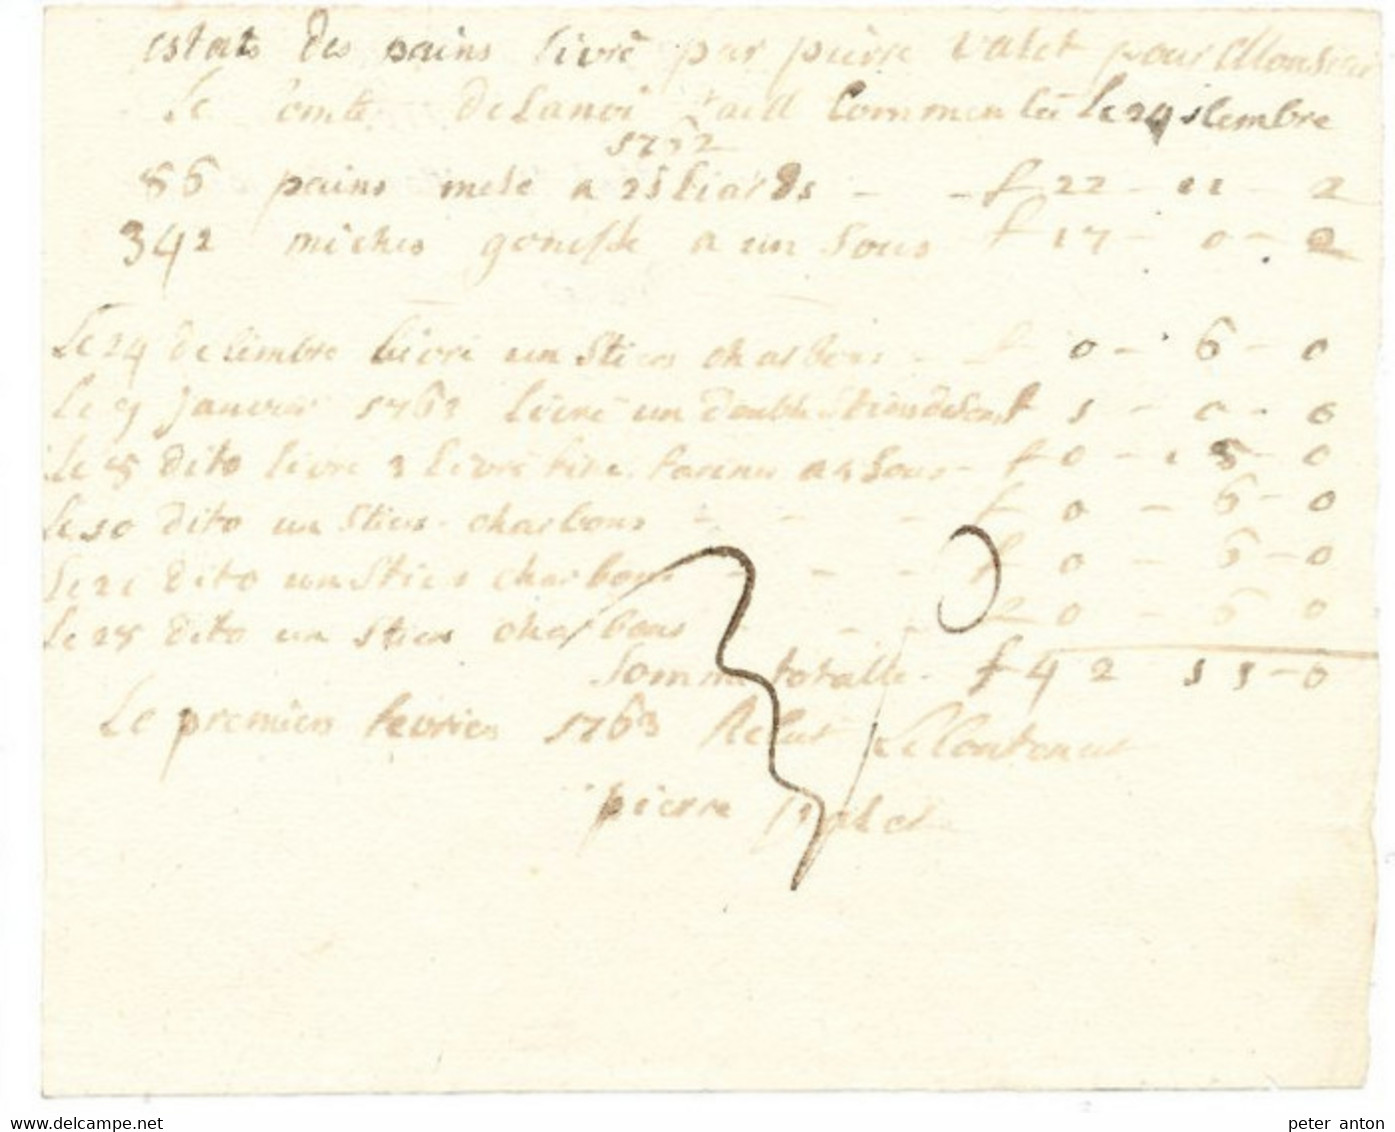 estats des pains livré par pierre valet pour Monsieur
Le Comte De Lanoi commencéé Le 24 xbembre
1762
86 pains mele a 21 liards - - f 22 - 11 - 2
342 miches gonesse a un sous f 17 - 0 - 2
Le 24 decembre livré un Stier charbons - f 0 - 6 - 0
Le 5 janvier 1763 livré un double Stier f 1 - 0 - 0
Le 8 dito livré 3 livre fine farinne a 5 Sous - f 0 - 15 - 0
Le 10 dito un Stier charbons - - - f 0 - 6 - 0
Le 21 dito un Stier charbons - - - f 0 - 6 - 0
Le 25 dito un Stier charbons - - - 0 - 6 0
Somme totalle - f 42 11 - 0
Le premier fevrier 1763 Recut Le Contenut
pierre valet
www.delcampe.net
peter anton